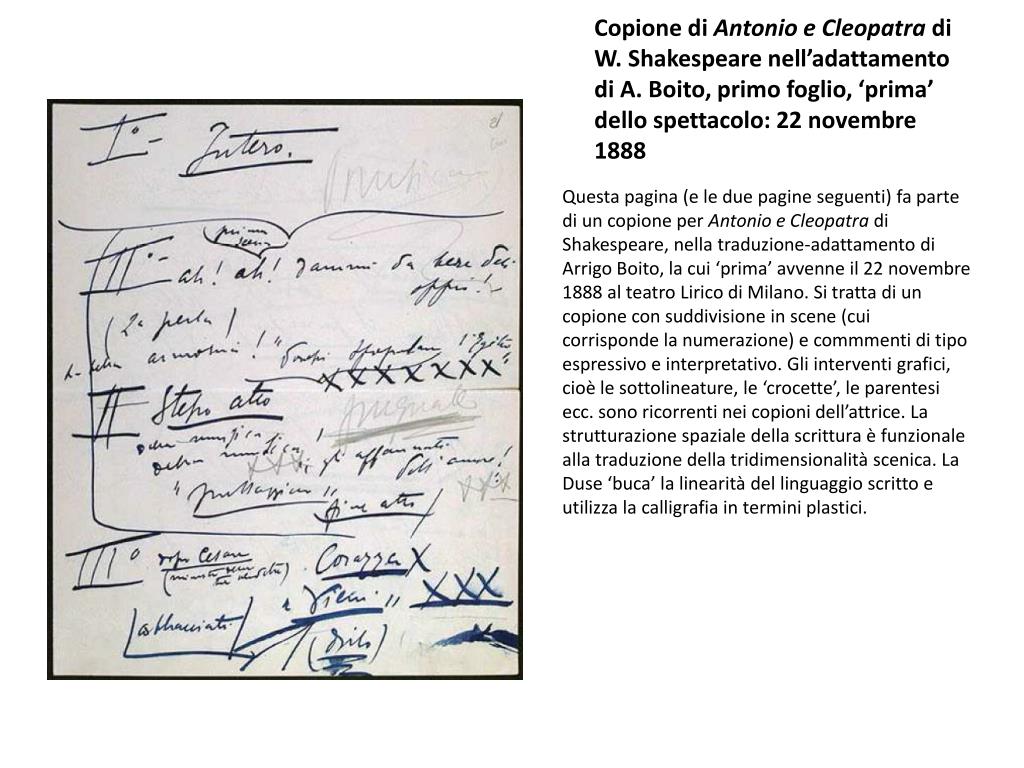 Copione di Antonio e Cleopatra di
W. Shakespeare nell’adattamento
di A. Boito, primo foglio, ‘prima’
dello spettacolo: 22 novembre
1888
Questa pagina (e le due pagine seguenti) fa parte
di un copione per Antonio e Cleopatra di
Shakespeare, nella traduzione-adattamento di
Arrigo Boito, la cui ‘prima’ avvenne il 22 novembre
1888 al teatro Lirico di Milano. Si tratta di un
copione con suddivisione in scene (cui
corrisponde la numerazione) e commmenti di tipo
espressivo e interpretativo. Gli interventi grafici,
cioè le sottolineature, le ‘crocette’, le parentesi
ecc. sono ricorrenti nei copioni dell’attrice. La
strutturazione spaziale della scrittura è funzionale
alla traduzione della tridimensionalità scenica. La
Duse ‘buca’ la linearità del linguaggio scritto e
utilizza la calligrafia in termini plastici.
I° - Intero.
prima
scena
ah! ah! dammi da bere
(la perla)
armonia! "
XXXXXXX
II Stesso atto
della musica
della musica
XXX
XXX
fine atto
III° dopo Cesare
Corazza X
" Vieni " XXX
abbracciati